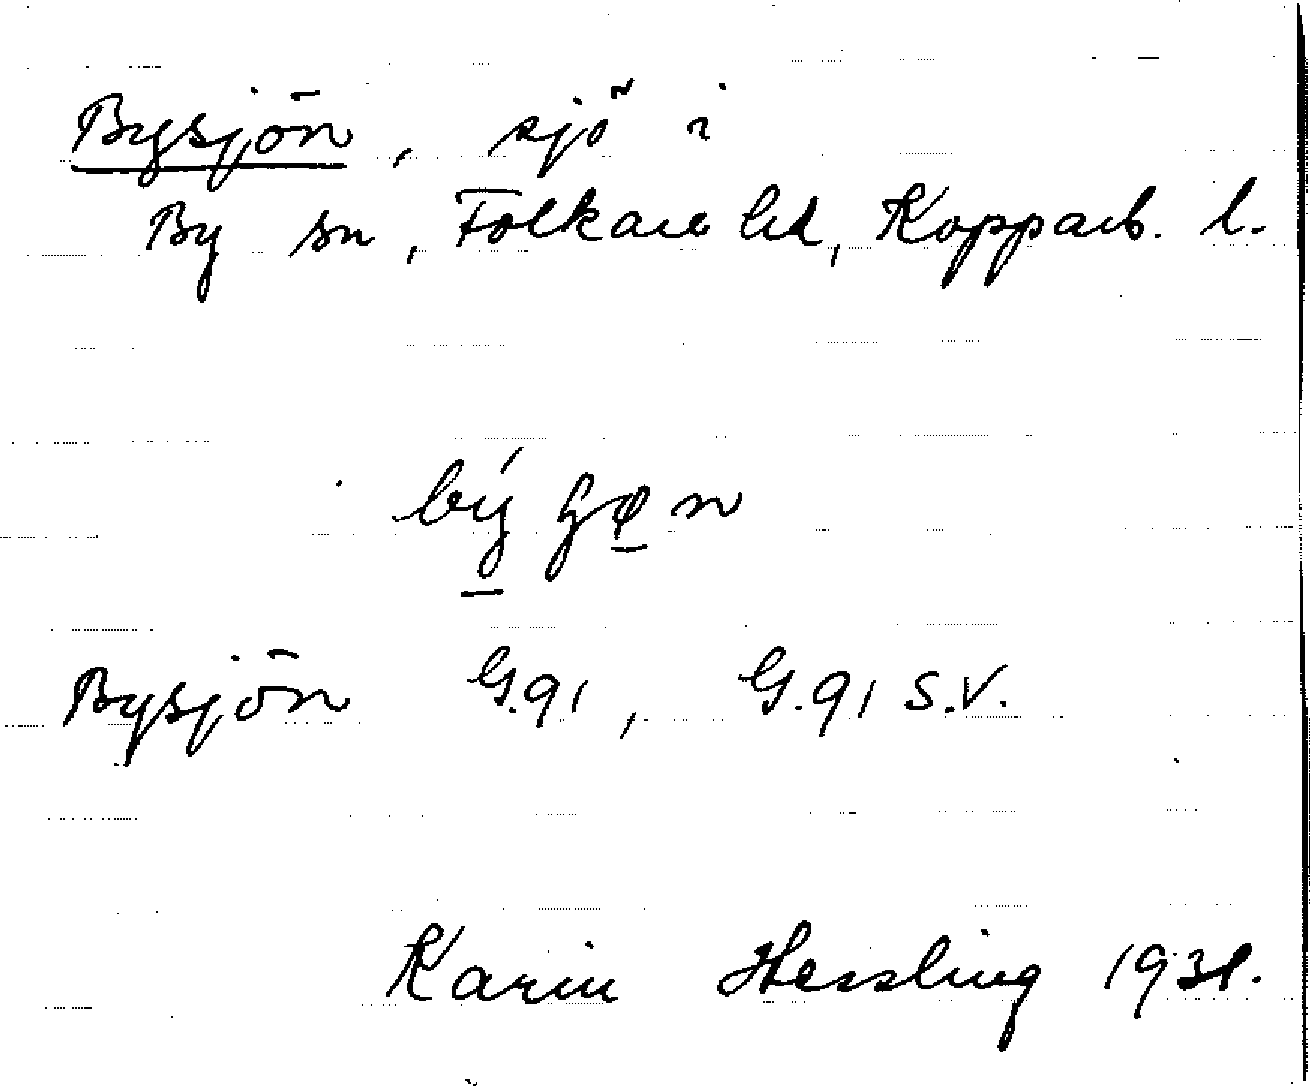 Bysjön, sjö i
By sn, Folkare hd, Kopparb. l.
Bysjön G.91, G.91 S.V.
Karin Hessling 1931.